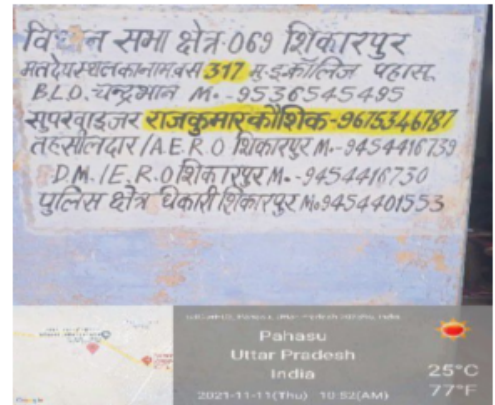 विधान सभा क्षेत्र:069 शिकारपुर
मतदेय स्थल का नाम व सं 317 मु.इ.कॉलिज पहासू
B.L.O. चन्द्रभान M.-9536545495
सुपरवाइजर राजकुमार कौशिक-9675346787
तहसीलदार/A.E.R.O शिकारपुर M.-9454416739
D.M./E.R.O शिकारपुर M.-9454416730
पुलिस क्षेत्र धिकारी शिकारपुर M.9454401553
Pahasu
Uttar Pradesh
India
25°C
2021-11-11(Thu) 10:52(AM)
77°F
Google